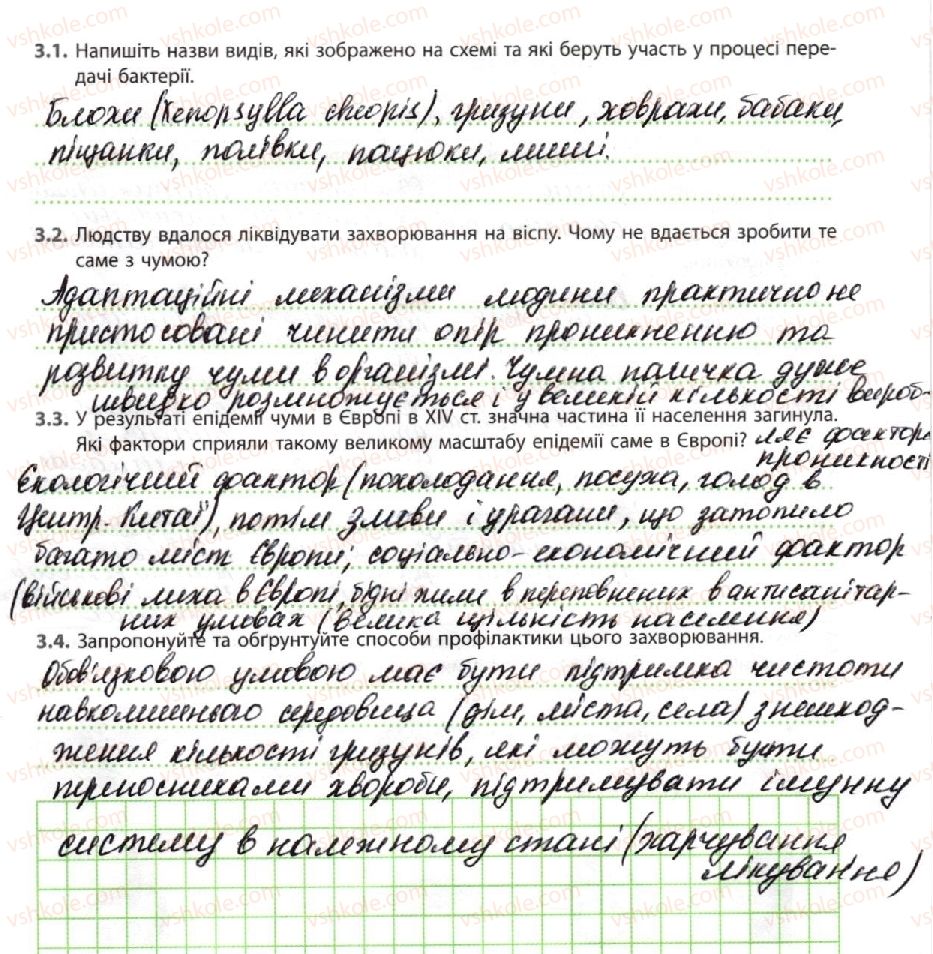 3.1. Напишіть назви видів, які зображено на схемі та які беруть участь у процесі пере-
дачі бактерії.
Блохи (Xenopsylla cheopis), гризуни, ховрахи, бабаки,
піщанки, полівки, пацюки, миші.
3.2. Людству вдалося ліквідувати захворювання на віспу. Чому не вдається зробити те
саме з чумою?
Адаптаційні механізми людини практично не
пристосовані чинити опір проникненню та
розвитку чуми в організмі. Чумна паличка дуже
швидко розмножується і у великій кількості вироб-
3.3. У результаті епідемії чуми в Європі в XIV ст. значна частина її населення загинула.
Які фактори сприяли такому великому масштабу епідемії саме в Європі?
ляє фактори
проникності
Екологічний фактор (похолодання, посуха, голод в
Центр. Китаї), потім зливи і урагани, що затопило
багато міст Європи; соціально-економічний фактор
(військові лиха в Європі, бідні жили в переповнених в антисанітар-
них умовах (велика щільність населення)
3.4. Запропонуйте та обґрунтуйте способи профілактики цього захворювання.
Обов'язковою умовою має бути підтримка чистоти
навколишнього середовища (дім, міста, села) знешкод-
ження кількості гризунів, які можуть бути
переносниками хвороби, підтримувати імунну
систему в належному стані (харчування
лікування)
vshkole.com